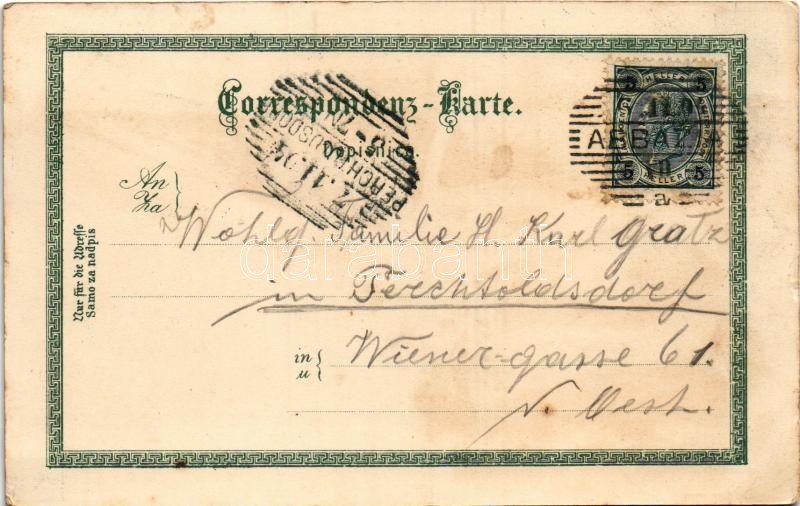 Correspondenz-Karte.
Dopisnica.
HELLER
5 5
ABBAZIA
HELLER
5 5
II
a
An
Za
Nur für die Adresse
Samo za nadpis
Wohlg. Familie H. Karl Gratz
in Perchtoldsdorf
in
u
Wiener-gasse 61.
N. Oest.
darabanth